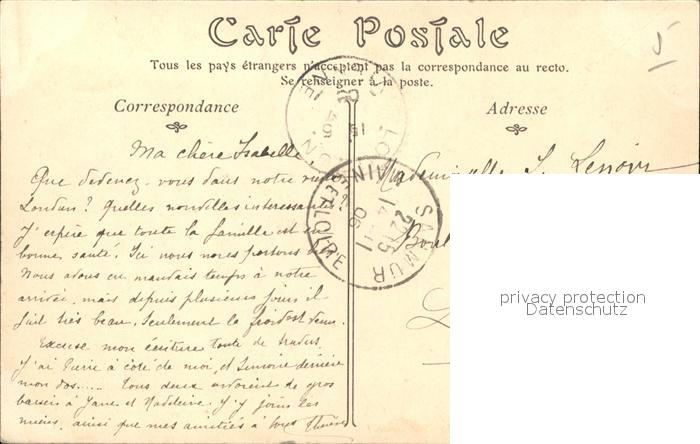 Carte Postale
Tous les pays étrangers n'acceptent pas la correspondance au recto.
Se renseigner à la poste.
Correspondance
Adresse
5
Ma chère Isabelle,
Mademoiselle I. Lenoir
Que devenez-vous dans votre
London? Quelles nouvelles intéressantes?
J'espère que toute la famille est en
bonne santé. Ici nous nous portons
Nous avons eu mauvais temps à notre
arrivée, mais depuis plusieurs jours il
fait très beau, seulement le froid est venu.
Excuse mon écriture toute de travers,
j'ai Pierre à côté de moi, et Simone derrière
mon dos..... Tous deux envoient de gros
baisers à Jane et Madeleine. J'y joins les
miens, ainsi que mes amitiés à tous
SAUMUR
22 15
14 - 11
06
MAINE ET LOIRE
LONDON
privacy protection
Datenschutz